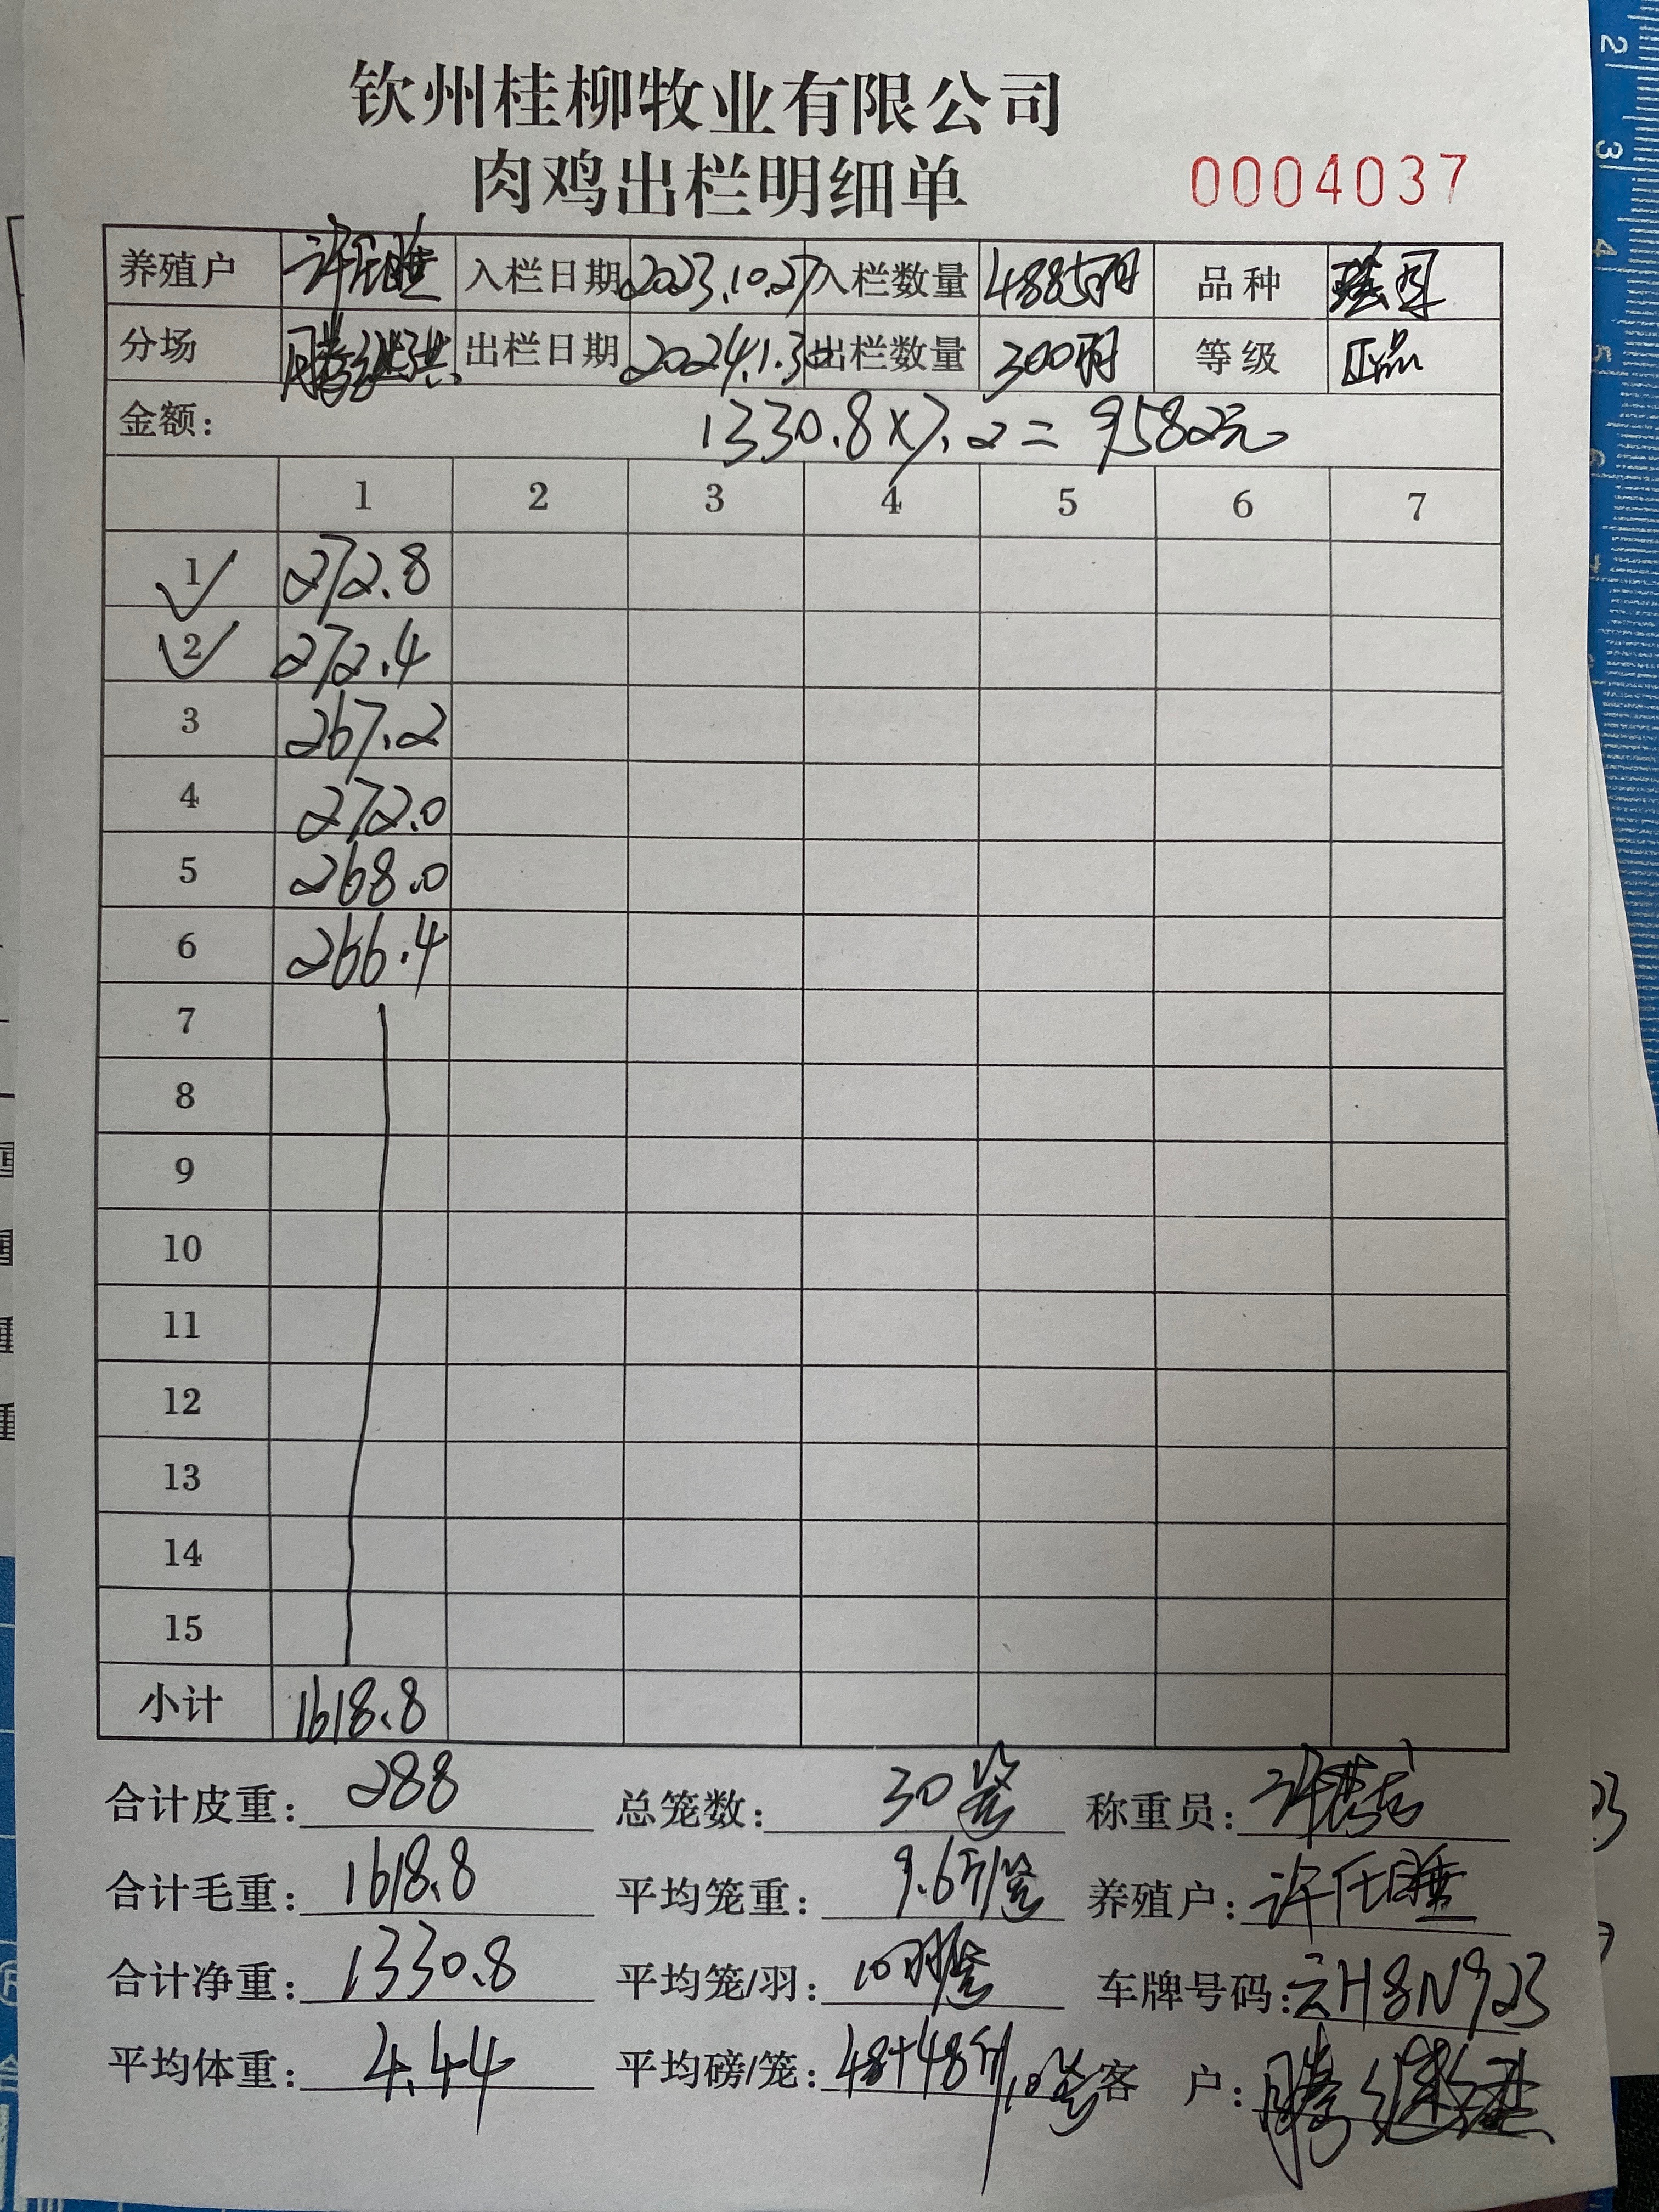 钦州桂柳牧业有限公司
肉鸡出栏明细单 0004037
养殖户 许任睡 入栏日期 2023.10.27 入栏数量 4885羽 品种
分场 出栏日期 2024.1.30 出栏数量 300羽 等级 正品
金额: 1330.8×7.2=9582元
1 2 3 4 5 6 7
1 272.8
2 272.4
3 267.2
4 272.0
5 268.0
6 266.4
7
8
9
10
11
12
13
14
15
小计 1618.8
合计皮重: 288 总笼数: 30笼 称重员:
合计毛重: 1618.8 平均笼重: 9.6斤/笼 养殖户: 许任睡
合计净重: 1330.8 平均笼/羽: 10羽/笼 车牌号码: 云H8N923
平均体重: 4.44 平均磅/笼: 48+48斤/10笼 客 户: